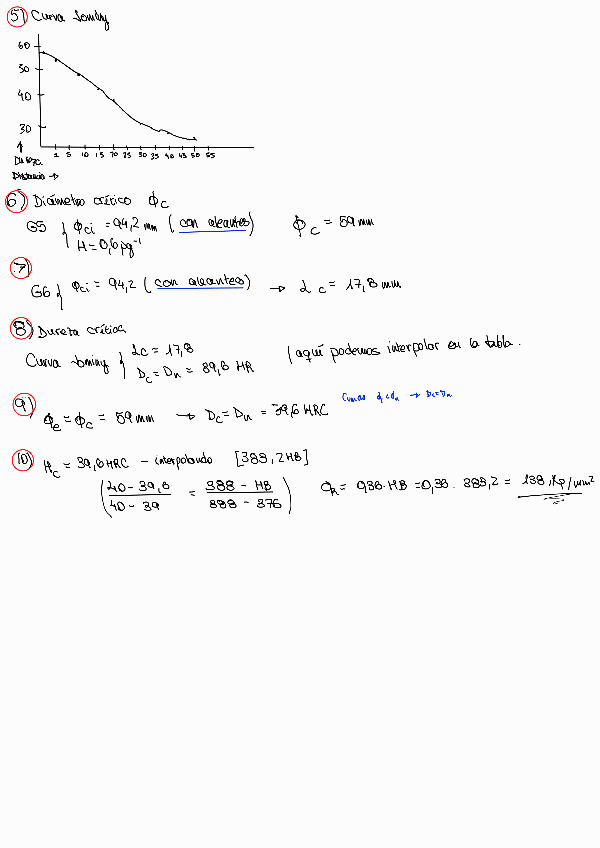 5) Curva Jominy
60
50
40
30
1 5 10 15 20 25 30 35 40 45 50 55
Dureza
Distancia →
6) Diámetro crítico ϕc
G5 { ϕci = 94,2 mm (con aleantes) ϕc = 59 mm
H = 0,6 pg⁻¹
7)
G6 { ϕci = 94,2 (con aleantes) → Lc = 17,8 mm
8) Dureza crítica
Curva Jominy { Lc = 17,8 (aquí podemos interpolar en la tabla.
Dc = Dn = 39,6 HR
9) Curvas → Dc = Dn
ϕe = ϕc = 59 mm → Dc = Dn = 39,6 HRC
10) Hc = 39,6 HRC – interpolando [383,2 HB]
(40 - 39,6 / 40 - 39 = 388 - HB / 388 - 376) = 0,36 · HB = 0,36 · 383,2 = 138, Kp/mm²